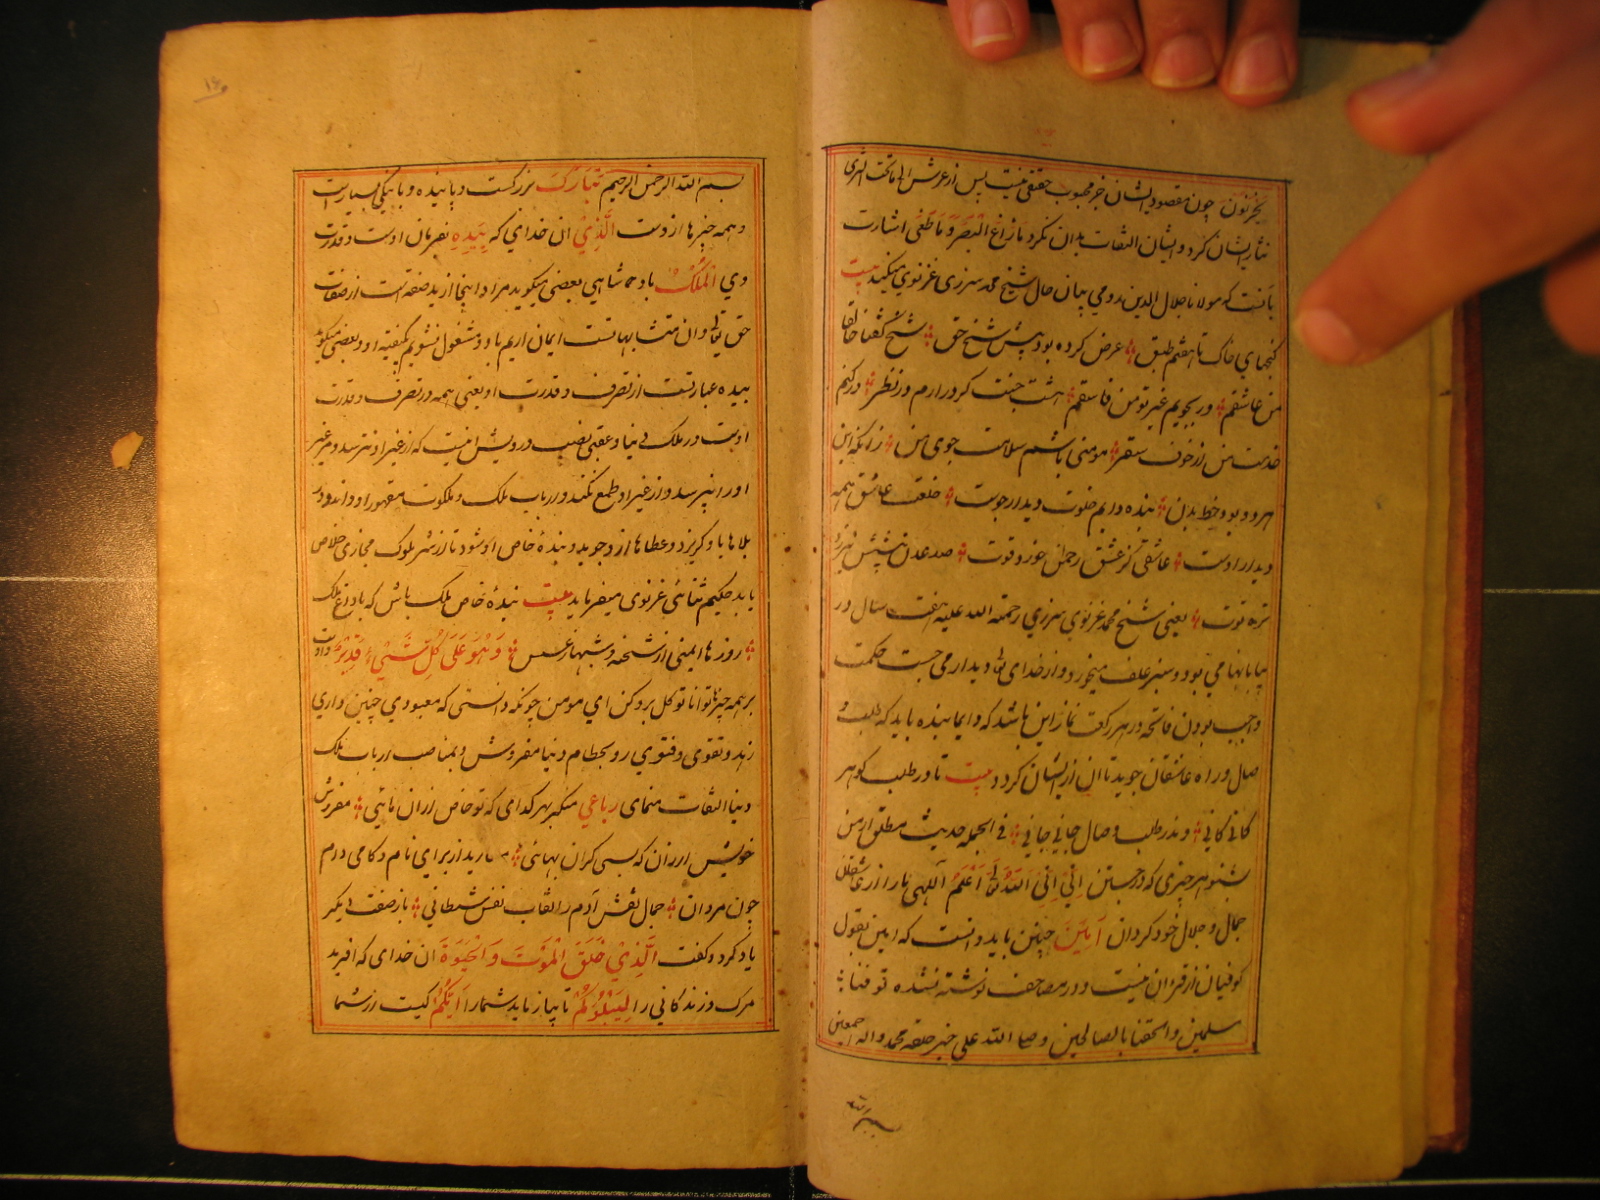 یحزنون چون مقصود ایشان جز محبوب حقیقی نیست پس از عرش الی ما تحت الثری
نثار ایشان کرد و ایشان التفات بدان نکرد مازاغ البصر و ما طغی اشارت
بآنست که مولانا جلال الدین رومی بیان حال شیخ محمد سررزی غزنوی میکند بیت
کنجهای خاک تا هفتم طبق عرض کرده بود پیش شیخ حق شیخ گفتا خالقا
من عاشقم ور بجویم غیر تو من فاسقم هشت جنت گر در آرم در نظر ور کنم
خدمت من از خوف سقر مومنی باشم سلامت جوی من زانکه این
هر دو بود حظ بدن بنده دایم خلوت دیدار جوست خلعت عاشق همه
دیدار اوست عاشقی کز عشق رحمان خورد قوت صد بدن پیشش نیرزد
تره توت یعنی شیخ محمد غزنوی سررزی رحمة الله علیه هفت سال در
بیابانها می بود و سبز علف میخورد و از خدای تعالی دیدار می جست حکمت
واجب بودن فاتحه در هر رکعت نماز این باشد که دایما بنده باید که طلب و
صال در راه عاشقان جوید تا آن از ایشان کردد بیت تا در طلب کوهر
کانی کانی و ندر طلب وصال جانی جانی فی الجمله حدیث مطلق از من
شنو هر چیزی که در جستن آنی آنی الله تعالی اعلم الهی ما را از عاشقان
جمال و جلال خود کردان آمین چنین باید دانست که امین بقول
کوفیان از قرآن نیست و در مصاحف نوشته نشده توفنا
مسلمین والحقنا بالصالحین و صلی الله علی خیر خلقه محمد و اله اجمعین
بسم الله
۱۶۰
بسم الله الرحمن الرحیم تبارک بزرکست و پاینده و با نیکی بسیار است
و همه چیزها از دست الذی آن خدای که بیده بفرمان اوست و قدرت
وی الملک بادشاهی بعضی میکوید مراد اینجا از ید صفة است از صفات
حق تعالی و آن متشابهاتست ایمان آریم باو و مشغول نشویم بکیفیة او و بعضی میکوید
بیده عبارتست از تصرف و قدرت او یعنی همه در تصرف و قدرت
اوست در ملک دنیا و عقبی نصیب درویش اینست که از غیر او نترسد و غیر
او را نپرسد و از غیر او طمع نکند و ارباب ملک و ملکوت مقهور او داند و در
بلاها باو کریزد و عطاها از و جوید و بندهٔ خاص او شود تا از شر ملوک مجازی خلاص
یابد حکیم ثنائی غزنوی میفرماید بیت بندهٔ خاص ملک باش که با داغ ملک
روزها ایمنی از شحنه و شبها ز عسس وهو علی کل شیء قدیر و اوست
بر همه چیزها توانا توکل برو کن ای مومن چونکه دانستی که معبودی چنین داری
زهد و تقوی و فتوی رو بحطام دنیا مفروش و بمناصب ارباب ملک
دنیا التفات منمای رباعی منکر بهر کدای که تو خاص از آن مائی مفروش
خویش ارزان که بسی کران بهائی از برای نام و کامی درم
چون مردان جمال نقش آدم را نقاب نفس شیطانی باز صفت دیکر
یاد کرد و کفت الذی خلق الموت والحیوة آن خدای که آفرید
مرک و زندکانی را لیبلوکم تا بیازماید شما را ایکم کیست از شما